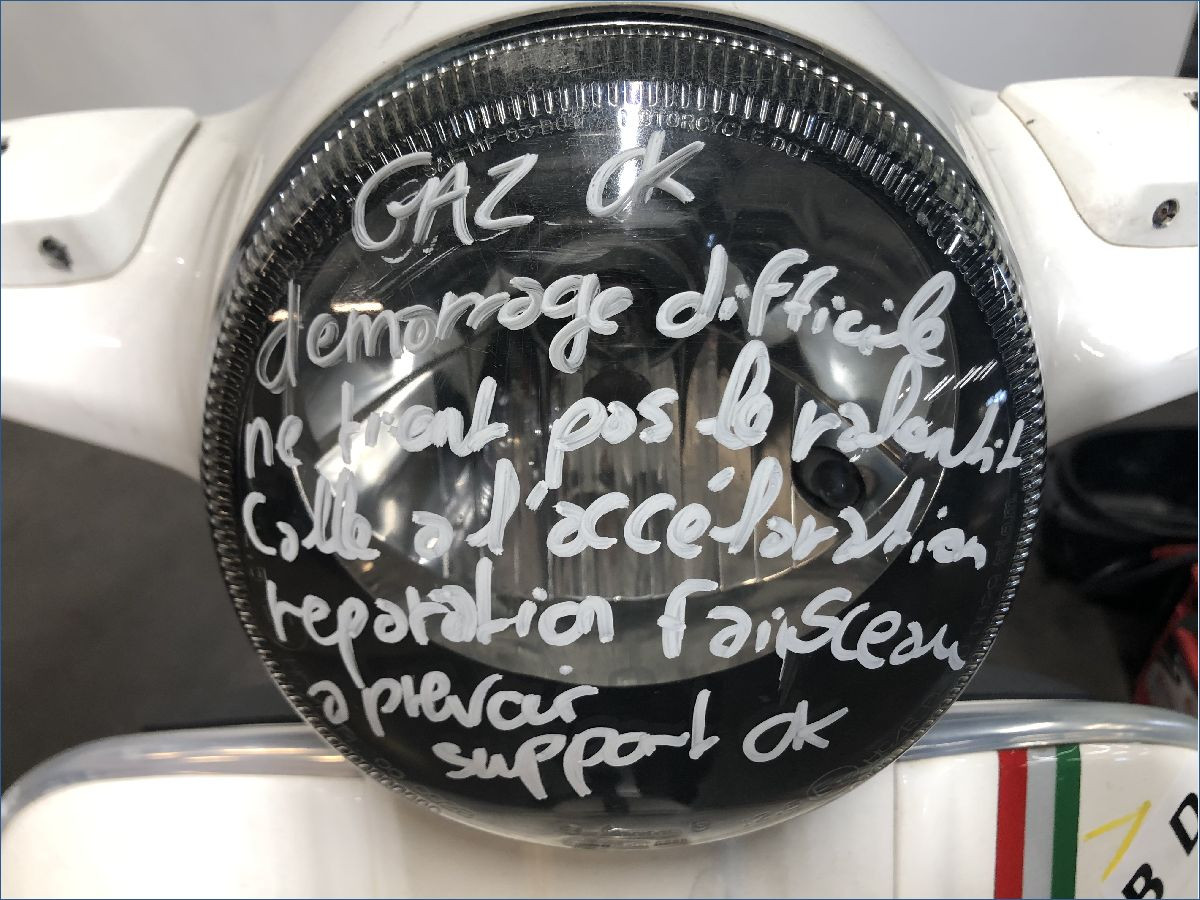 MOTORCYCLE DOT
GAZ OK
demorrage difficile
ne tient pas le ralentit
Calle a l'accélaration
reparation faisceau
a prevoir
support OK
B D